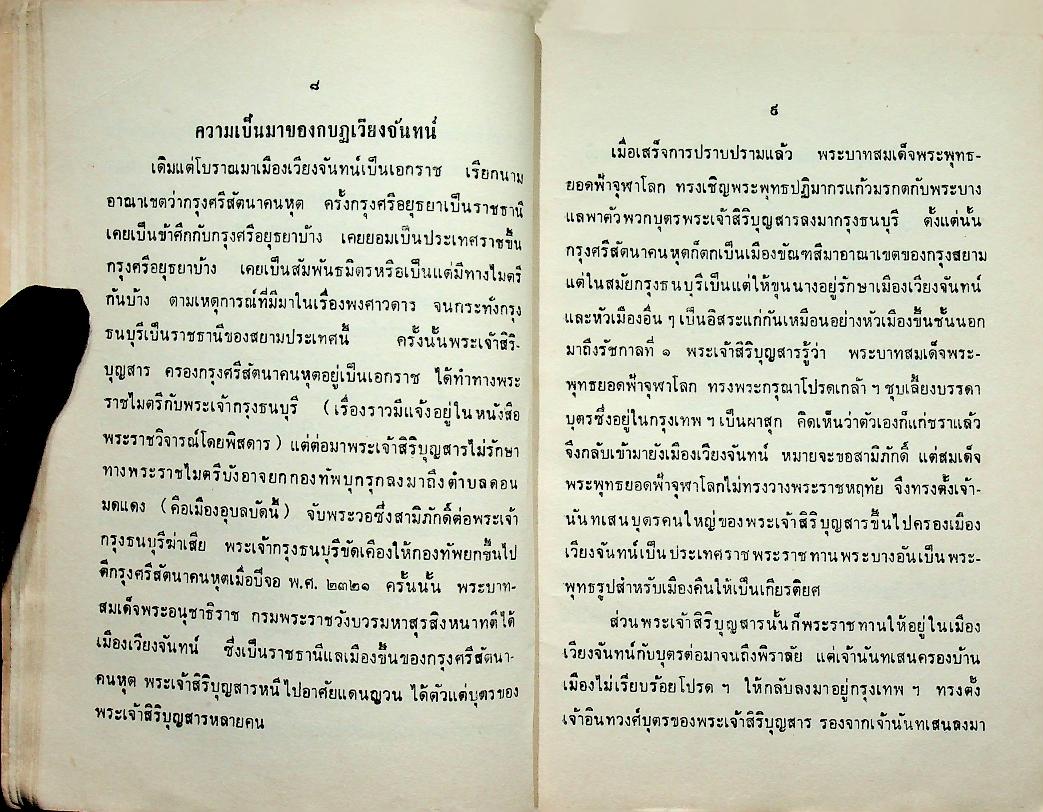 ๘
ความเป็นมาของกบฏเวียงจันทน์
เดิมแต่โบราณมาเมืองเวียงจันทน์เป็นเอกราช เรียกนาม
อาณาเขตว่ากรุงศรีสัตนาคนหุต ครั้งกรุงศรีอยุธยาเป็นราชธานี
เคยเป็นข้าศึกกับกรุงศรีอยุธยาบ้าง เคยยอมเป็นประเทศราชขึ้น
กรุงศรีอยุธยาบ้าง เคยเป็นสัมพันธมิตรหรือเป็นแต่มีทางไมตรี
กันบ้าง ตามเหตุการณ์ที่มีมาในเรื่องพงศาวดาร จนกระทั่งกรุง
ธนบุรีเป็นราชธานีของสยามประเทศนี้ ครั้งนั้นพระเจ้าสิริ-
บุญสาร ครองกรุงศรีสัตนาคนหุตอยู่เป็นเอกราช ได้ทำทางพระ
ราชไมตรีกับพระเจ้ากรุงธนบุรี (เรื่องราวมีแจ้งอยู่ในหนังสือ
พระราชวิจารณ์โดยพิสดาร) แต่ต่อมาพระเจ้าสิริบุญสารไม่รักษา
ทางพระราชไมตรีบังอาจยกกองทัพบุกรุกลงมาถึงตำบลดอน
มดแดง (คือเมืองอุบลบัดนี้) จับพระวอซึ่งสามิภักดิ์ต่อพระเจ้า
กรุงธนบุรีฆ่าเสีย พระเจ้ากรุงธนบุรีขัดเคืองให้กองทัพยกขึ้นไป
ตีกรุงศรีสัตนาคนหุตเมื่อปีจอ พ.ศ. ๒๓๒๑ ครั้นนั้น พระบาท-
สมเด็จพระอนุชาธิราช กรมพระราชวังบวรมหาสุรสิงหนาทตีได้
เมืองเวียงจันทน์ ซึ่งเป็นราชธานีแลเมืองขึ้นของกรุงศรีสัตนา-
คนหุต พระเจ้าสิริบุญสารหนีไปอาศัยแดนญวน ได้ตัวแต่บุตรของ
พระเจ้าสิริบุญสารหลายคน
๙
เมื่อเสร็จการปราบปรามแล้ว พระบาทสมเด็จพระพุทธ-
ยอดฟ้าจุฬาโลก ทรงเชิญพระพุทธปฏิมากรแก้วมรกตกับพระบาง
แลพาตัวพวกบุตรพระเจ้าสิริบุญสารลงมากรุงธนบุรี ตั้งแต่นั้น
กรุงศรีสัตนาคนหุตก็ตกเป็นเมืองขัณฑสีมาอาณาเขตของกรุงสยาม
แต่ในสมัยกรุงธนบุรีเป็นแต่ให้ขุนนางอยู่รักษาเมืองเวียงจันทน์
และหัวเมืองอื่น ๆ เป็นอิสระแก่กันเหมือนอย่างหัวเมืองขึ้นชั้นนอก
มาถึงรัชกาลที่ ๑ พระเจ้าสิริบุญสารรู้ว่า พระบาทสมเด็จพระ-
พุทธยอดฟ้าจุฬาโลก ทรงพระกรุณาโปรดเกล้า ฯ ชุบเลี้ยงบรรดา
บุตรซึ่งอยู่ในกรุงเทพ ฯ เป็นผาสุก คิดเห็นว่าตัวเองก็แก่ชราแล้ว
จึงกลับเข้ามายังเมืองเวียงจันทน์ หมายจะขอสามิภักดิ์ แต่สมเด็จ
พระพุทธยอดฟ้าจุฬาโลกไม่ทรงวางพระราชหฤทัย จึงทรงตั้งเจ้า-
นันทเสนบุตรคนใหญ่ของพระเจ้าสิริบุญสารขึ้นไปครองเมือง
เวียงจันทน์เป็นประเทศราชพระราชทานพระบางอันเป็นพระ-
พุทธรูปสำหรับเมืองคืนให้เป็นเกียรติยศ
ส่วนพระเจ้าสิริบุญสารนั้นก็พระราชทานให้อยู่ในเมือง
เวียงจันทน์กับบุตรต่อมาจนถึงพิราลัย แต่เจ้านันทเสนครองบ้าน
เมืองไม่เรียบร้อยโปรด ฯ ให้กลับลงมาอยู่กรุงเทพ ฯ ทรงตั้ง
เจ้าอินทวงศ์บุตรของพระเจ้าสิริบุญสาร รองจากเจ้านันทเสนลงมา